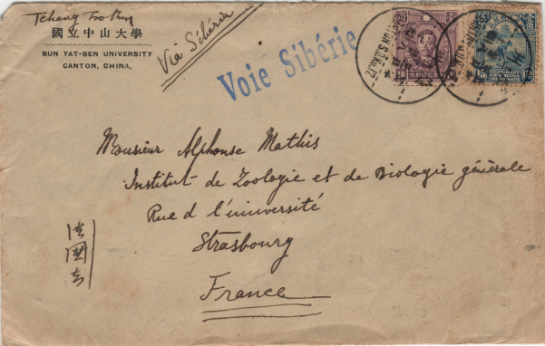 Tchang
國立中山大學
SUN YAT-SEN UNIVERSITY
CANTON, CHINA.
Via Sibérie
Voie Sibérie
Monsieur Alphonse Mathis
Institut de Zoologie et de Biologie générale
Rue d l'université
Strasbourg
France
法國